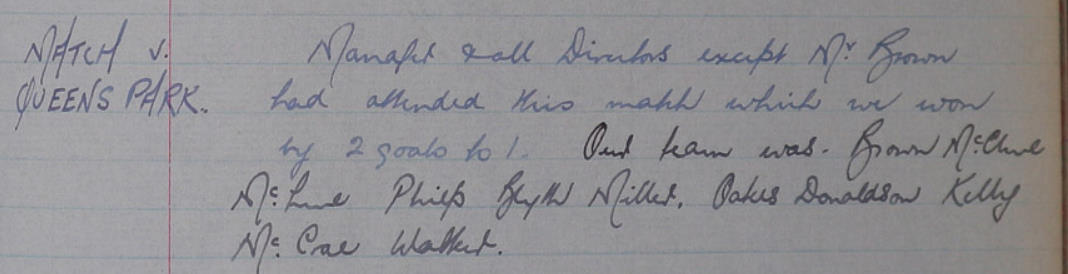 MATCH V.
QUEENS PARK.
Manager & all Directors except Mr Brown
had attended this match which we won
by 2 goals to 1. Our team was. Brown McClure
Philip Blyth Miller, Oakes Donaldson Kelly
McCrae Walker.